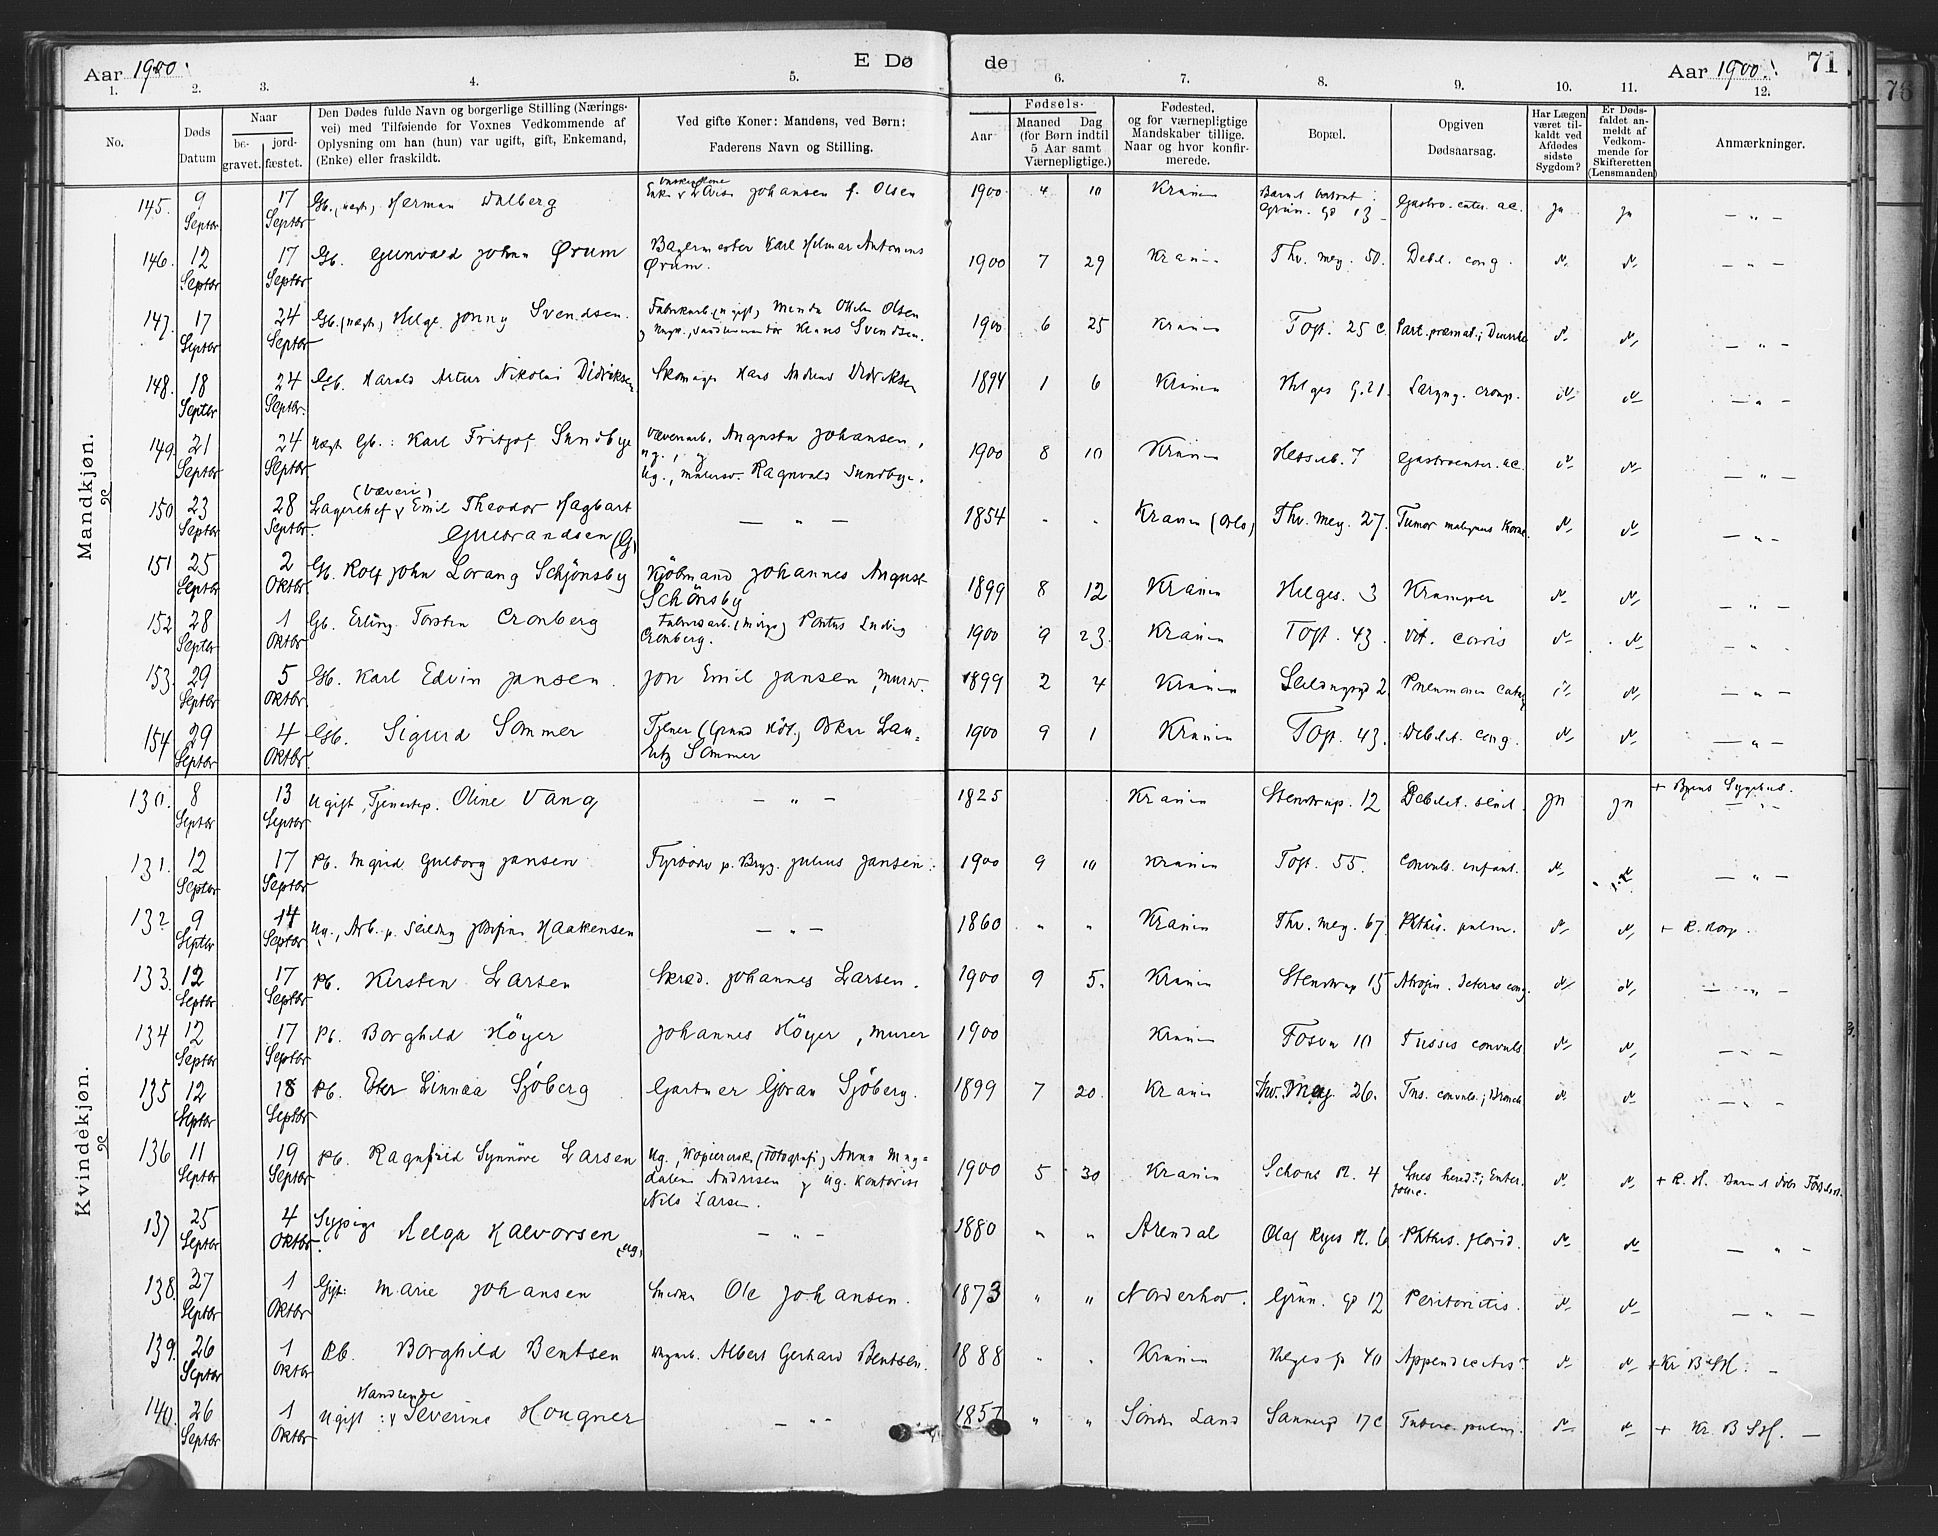 Aar 1900. E Dø de Aar 1900. 71.
76
1. 2. 3. 4. 5. 6. 7. 8. 9. 10. 11. 12.
No.
Døds Datum
Naar
be-gravet. jord-fæstet.
Den Dødes fulde Navn og borgerlige Stilling (Nærings-
vei) med Tilføiende for Voxnes Vedkommende af
Oplysning om han (hun) var ugift, gift, Enkemand,
(Enke) eller fraskildt.
Ved gifte Koner: Mandens, ved Børn:
Faderens Navn og Stilling.
Fødsels-
Aar
Maaned Dag
(for Børn indtil
5 Aar samt
Værnepligtige.)
Fødested,
og for værnepligtige
Mandskaber tillige.
Naar og hvor konfir-
merede.
Bopæl.
Opgiven
Dødsaarsag.
Har Lægen
været til-
kaldt ved
Afdødes
sidste
Sygdom?
Er Døds-
faldet an-
meldt af
Vedkom-
mende for
Skifteretten
(Lensmanden)
Anmærkninger.
Mandkjøn.
145. 9 Septbr 17 Septbr Gb. (uægt) Herman Walberg Johansen f. Olsen 1900 4 10 Krania Grün. gd 13 Gastro. enter. ac. ja ja — " —
146. 12 Septbr 17 Septbr Gb. Gunvald Johan Ørum Bagermester Karl Hilmar Antonius
Ørum. 1900 7 29 Krania Thv. Mey. 50. Debil. cong. — " —
147. 17 Septbr 24 Septbr Gb. (uægt) Helge Jonny Svendsen. Fabrikarb. (ugift) Olsen
Svendsen. 1900 6 25 Krania Toft. 25 c. Part. præmat.; — " —
148. 18 Septbr 24 Septbr Gb. Harald Artur Nikolai Didriksen Skomager Hans Andreas Didriksen 1894 1 6 Krania Helges G. 21. Laryng. croup. — " —
149. 21 Septbr 24 Septbr uægt Gb.: Karl Fritjof Sundbye Væveriarb. Augusta Johansen,
ug., og
Ug., Ragnvald Sundbye. 1900 8 10 Krania 7 Gastroenter. ac. — " —
150 23 Septbr 28 Septbr. (Væveri)
Lagerchef Emil Theodor Hagbart
Gulbrandsen (G) — " — 1854 " " Krania (Oslo) Thv. Mey. 27. Tumor malignus — " —
151 25 Septbr 2 Oktbr Gb. Rolf John Lorang Schjønsby Kjøbmand Johannes August
Schönsby 1899 8 12 Krania Helges. 3 Kramper — " —
152 28 Septbr 1 Oktbr Gb. Erling Torsten Cronberg Pontus Ludvig
Cronberg. 1900 9 23 Krania Toft. 43. Vit. cordis — " .
153. 29 Septbr 5 Oktbr. Gb. Karl Edvin Jansen. Jon Emil Jansen, Murer. 1899 2 4 Krania 2. Pneumonia — " —
154. 29 Septbr 4 Oktbr. Gb. Sigurd Sommer Tjener (Grand Hôt.) Oskar Lau-
ritz Sommer 1900 9 1 Krania Toft. 43. Debilit. cong. — " —
Kvindekjøn.
130. 8 Septbr 13 Septbr Ugift, Tjenestep. Oline Vang — " — 1825 Krania Stenstrup. 12 Debilit. senil. ja ja + Byens Sygehus.
131. 12 Septbr 17 Septbr Pb. Ingrid Gulborg Jansen Fyrbøder p. Bryg. Julius Jansen. 1900 9 10 Krania Toft. 55. Convuls. infant. — " —
132 9 Septbr 14 Septbr Ug., Arb. p. Josefine Haakensen — " — 1860 " " Krania Thv. Mey. 67. Phthis. pulm. + R. Hosp.
133. 12 Septbr 17 Septbr Pb. Kirsten Larsen Skræd. Johannes Larsen. 1900 9 5. Krania Stenstrup 15 Atrofia. — " —
134 12 Septbr 17 Septbr Pb. Borghild Höyer Johannes Höyer, Murer 1900 Krania Fosv. 10 Tussis convuls — " —
135 12 Septbr 18 Septbr Pb. Linnea Sjöberg Gartner Gjöran Sjöberg. 1899 7 20 Krania Thv. Mey. 26. Tus. convuls.; Bronch — " —
136 11 Septbr 19 Septbr Pb. Ragnhild Synnöve Larsen Ug., (Fotografi) Anna Mag-
dalena Andresen og ug. Kontorist
Nils Larsen. 1900 5 30 Krania Schous Pl. 4 Lues hered.; Enter. + R. H.
137 25 Septbr 4 Oktbr. Sypige Helga Halvorsen (ug) — " — 1880 " " Arendal Olaf Ryes Pl. 6 Phthis. florid. — " —
138. 27 Septbr 1 Oktbr Gift: Marie Johansen Snedker Ole Johansen. 1873 " " Norderhov. Grün. gd 12 Peritonitis. — " —
139. 26 Septbr 1 Oktbr Pb. Borghild Bentsen Albert Gerhard Bentsen. 1888 " " Krania Helges g 40 Appendicitis + Kr B SH. —
140. 26 Septbr 1 Oktbr Handlende
Ugift: Severine Hougner — " — 1857 " " Söndre Land Sannergd 17 c Tuberc. pulm. + Kr. B SH. —